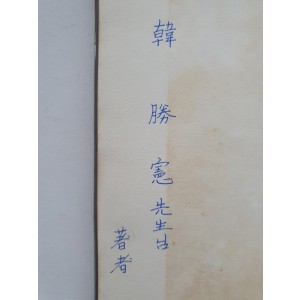 韓勝憲先生께
著者